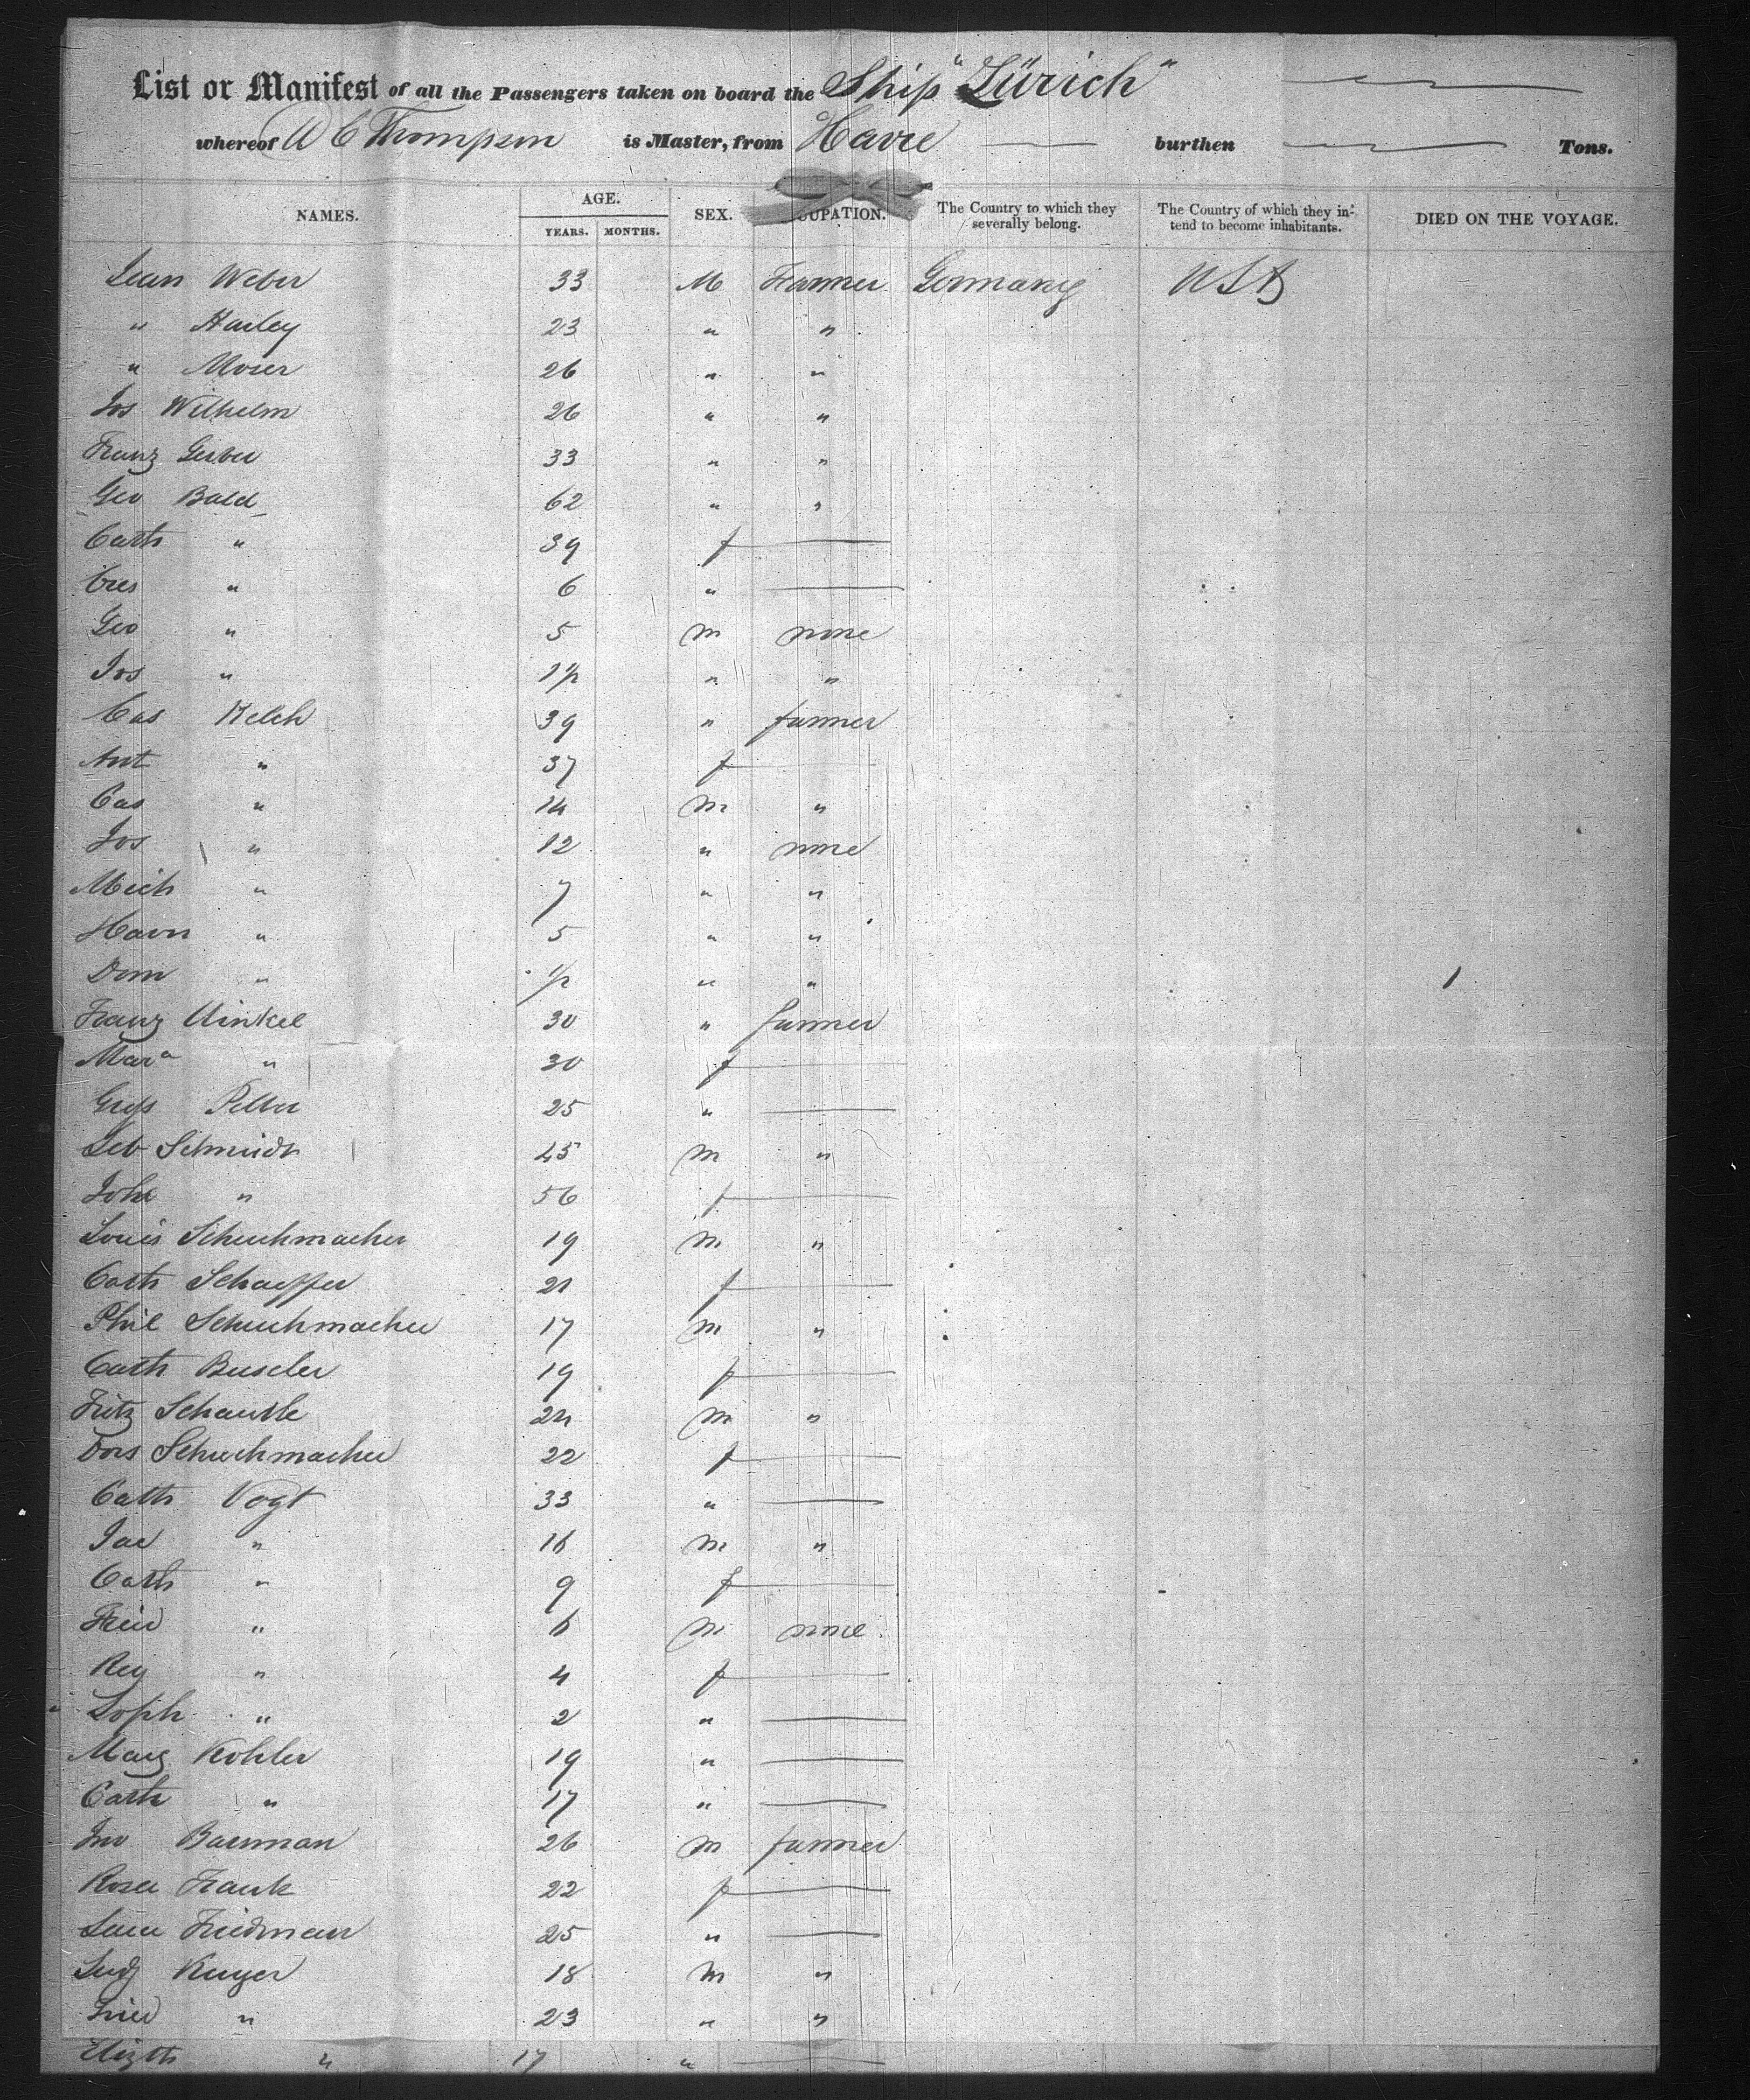 List or Manifest of all the Passengers taken on board the Ship "Zürich"
whereof A C Thompson is Master, from Havre burthen Tons.
NAMES. AGE. YEARS. MONTHS. SEX. OCCUPATION. The Country to which they severally belong. The Country of which they intend to become inhabitants. DIED ON THE VOYAGE.
Jean Weber 33 M Farmer Germany USA
" Harley 23 " "
" Moser 26 " "
Jos Wilhelm 26 " "
Franz Gerber 33 " "
Geo Bald 62 " "
Cath " 39 f
Cres " 6 "
Geo " 5 m none
Jos " 1½ " "
Cas Kelch 39 " farmer
Ant " 37 f
Cas " 14 m "
Jos " 12 " none
Mich " 7 " "
" 5 " "
Dom " ½ " " 1
Franz Hinkel 30 " farmer
Mar a " 30 f
25 "
Seb Schmidt 45 m "
" 56 f
Louis Schuchmacher 19 m "
Cath Schaeffer 21 f
Phil Schuchmacher 17 m "
Cath Buseler 19 f
Fritz 24 m "
Dors Schuchmacher 22 f
Cath Vogt 33 "
Jac " 16 m "
Cath " 9 f
Fried " 6 m none
Reg " 4 f
Soph " 2 "
Marg Kohler 19 "
Cath " 17 "
Jno Barnman 26 m farmer
Rosa Frank 22 f
Friedman 25 "
Ludg 18 m "
" 23 " "
Elizth " 17 "